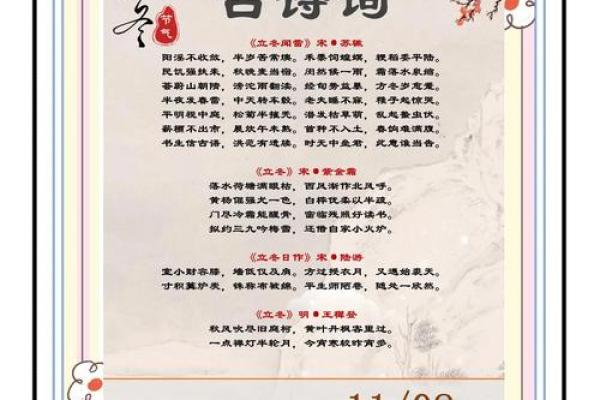 古诗词
冬
节气
《立冬闻雷》宋●苏辙
阳淫不收敛，半岁苦常燠。禾黍饲蝗螟，粳稻委平陆。
民饥强扶耒，秋晚麦当宿。闵然候一雨，霜落水泉缩。
荟蔚山朝隮，滂沱雨翻渎。经旬势益暴，方冬岁愈蹙。
半夜发春雷，中天转车毂。老夫睡不寐，稚子起惊哭。
平明视中庭，松菊半摧秃。潜发枯草萌，乱起蛰虫伏。
薪槱不出市，晨炊午未熟。首种不入土，春饷难满腹。
书生信古语，洪范有遗牍。时无中垒君，此意谁当告。
《立冬》宋●紫金霜
落水荷塘满眼枯，西风渐作北风呼。
黄杨倔强尤一色，白桦优柔以半疏。
门尽冷霜能醒骨，窗临残照好读书。
拟约三九吟梅雪，还借自家小火炉。
《立冬日作》宋●陆游
室小财容膝，墙低仅及肩。方过授衣月，又遇始裘天。
寸积篝炉炭，铢称布被绵。平生师陋巷，随处一欣然。
《立冬》明●王穉登
秋风吹尽旧庭柯，黄叶丹枫客里过。
一点禅灯半轮月，今宵寒较昨宵多。